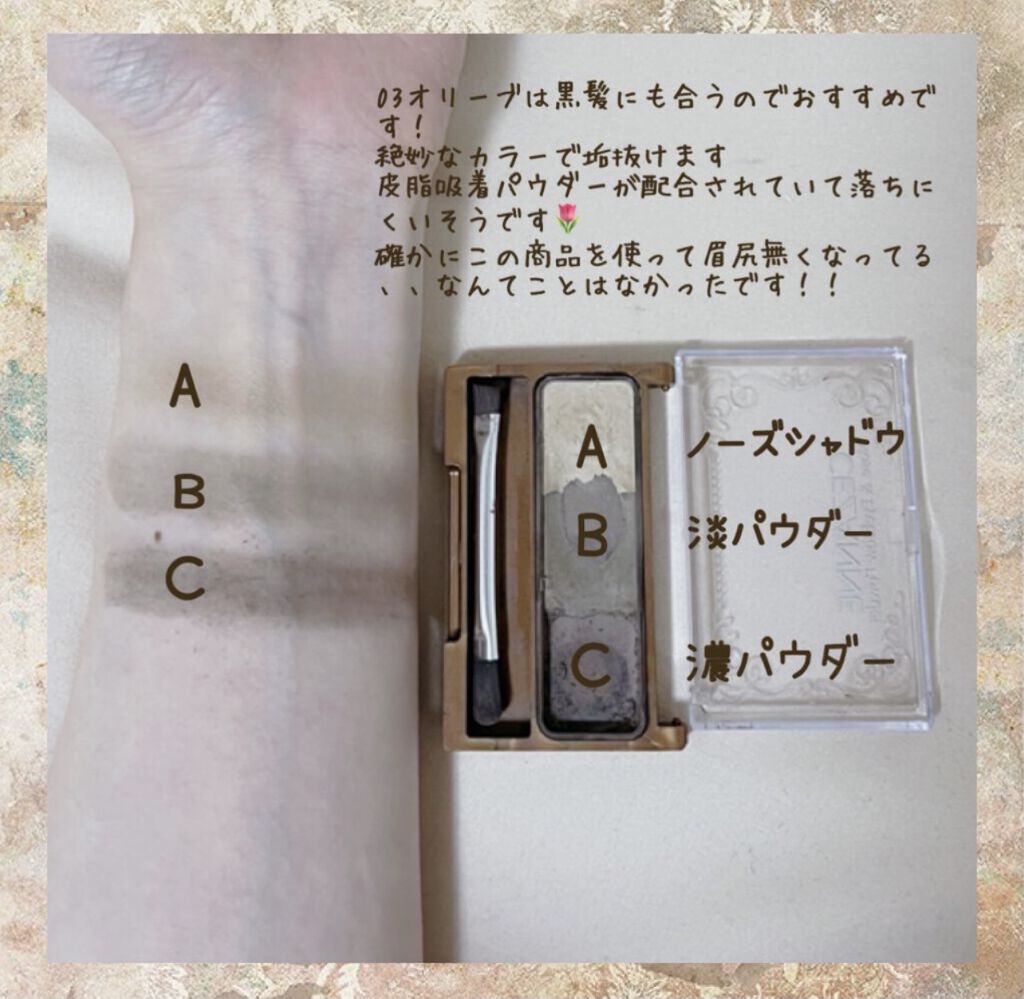 03オリーブは黒髪にも合うのでおすすめで
す！
絶妙なカラーで垢抜けます
皮脂吸着パウダーが配合されていて落ちに
くいそうです🌷
確かにこの商品を使って眉尻無くなってる
、、なんてことはなかったです！！
A
B
C
A
B
C
ノーズシャドウ
淡パウダー
濃パウダー
CEZANNE